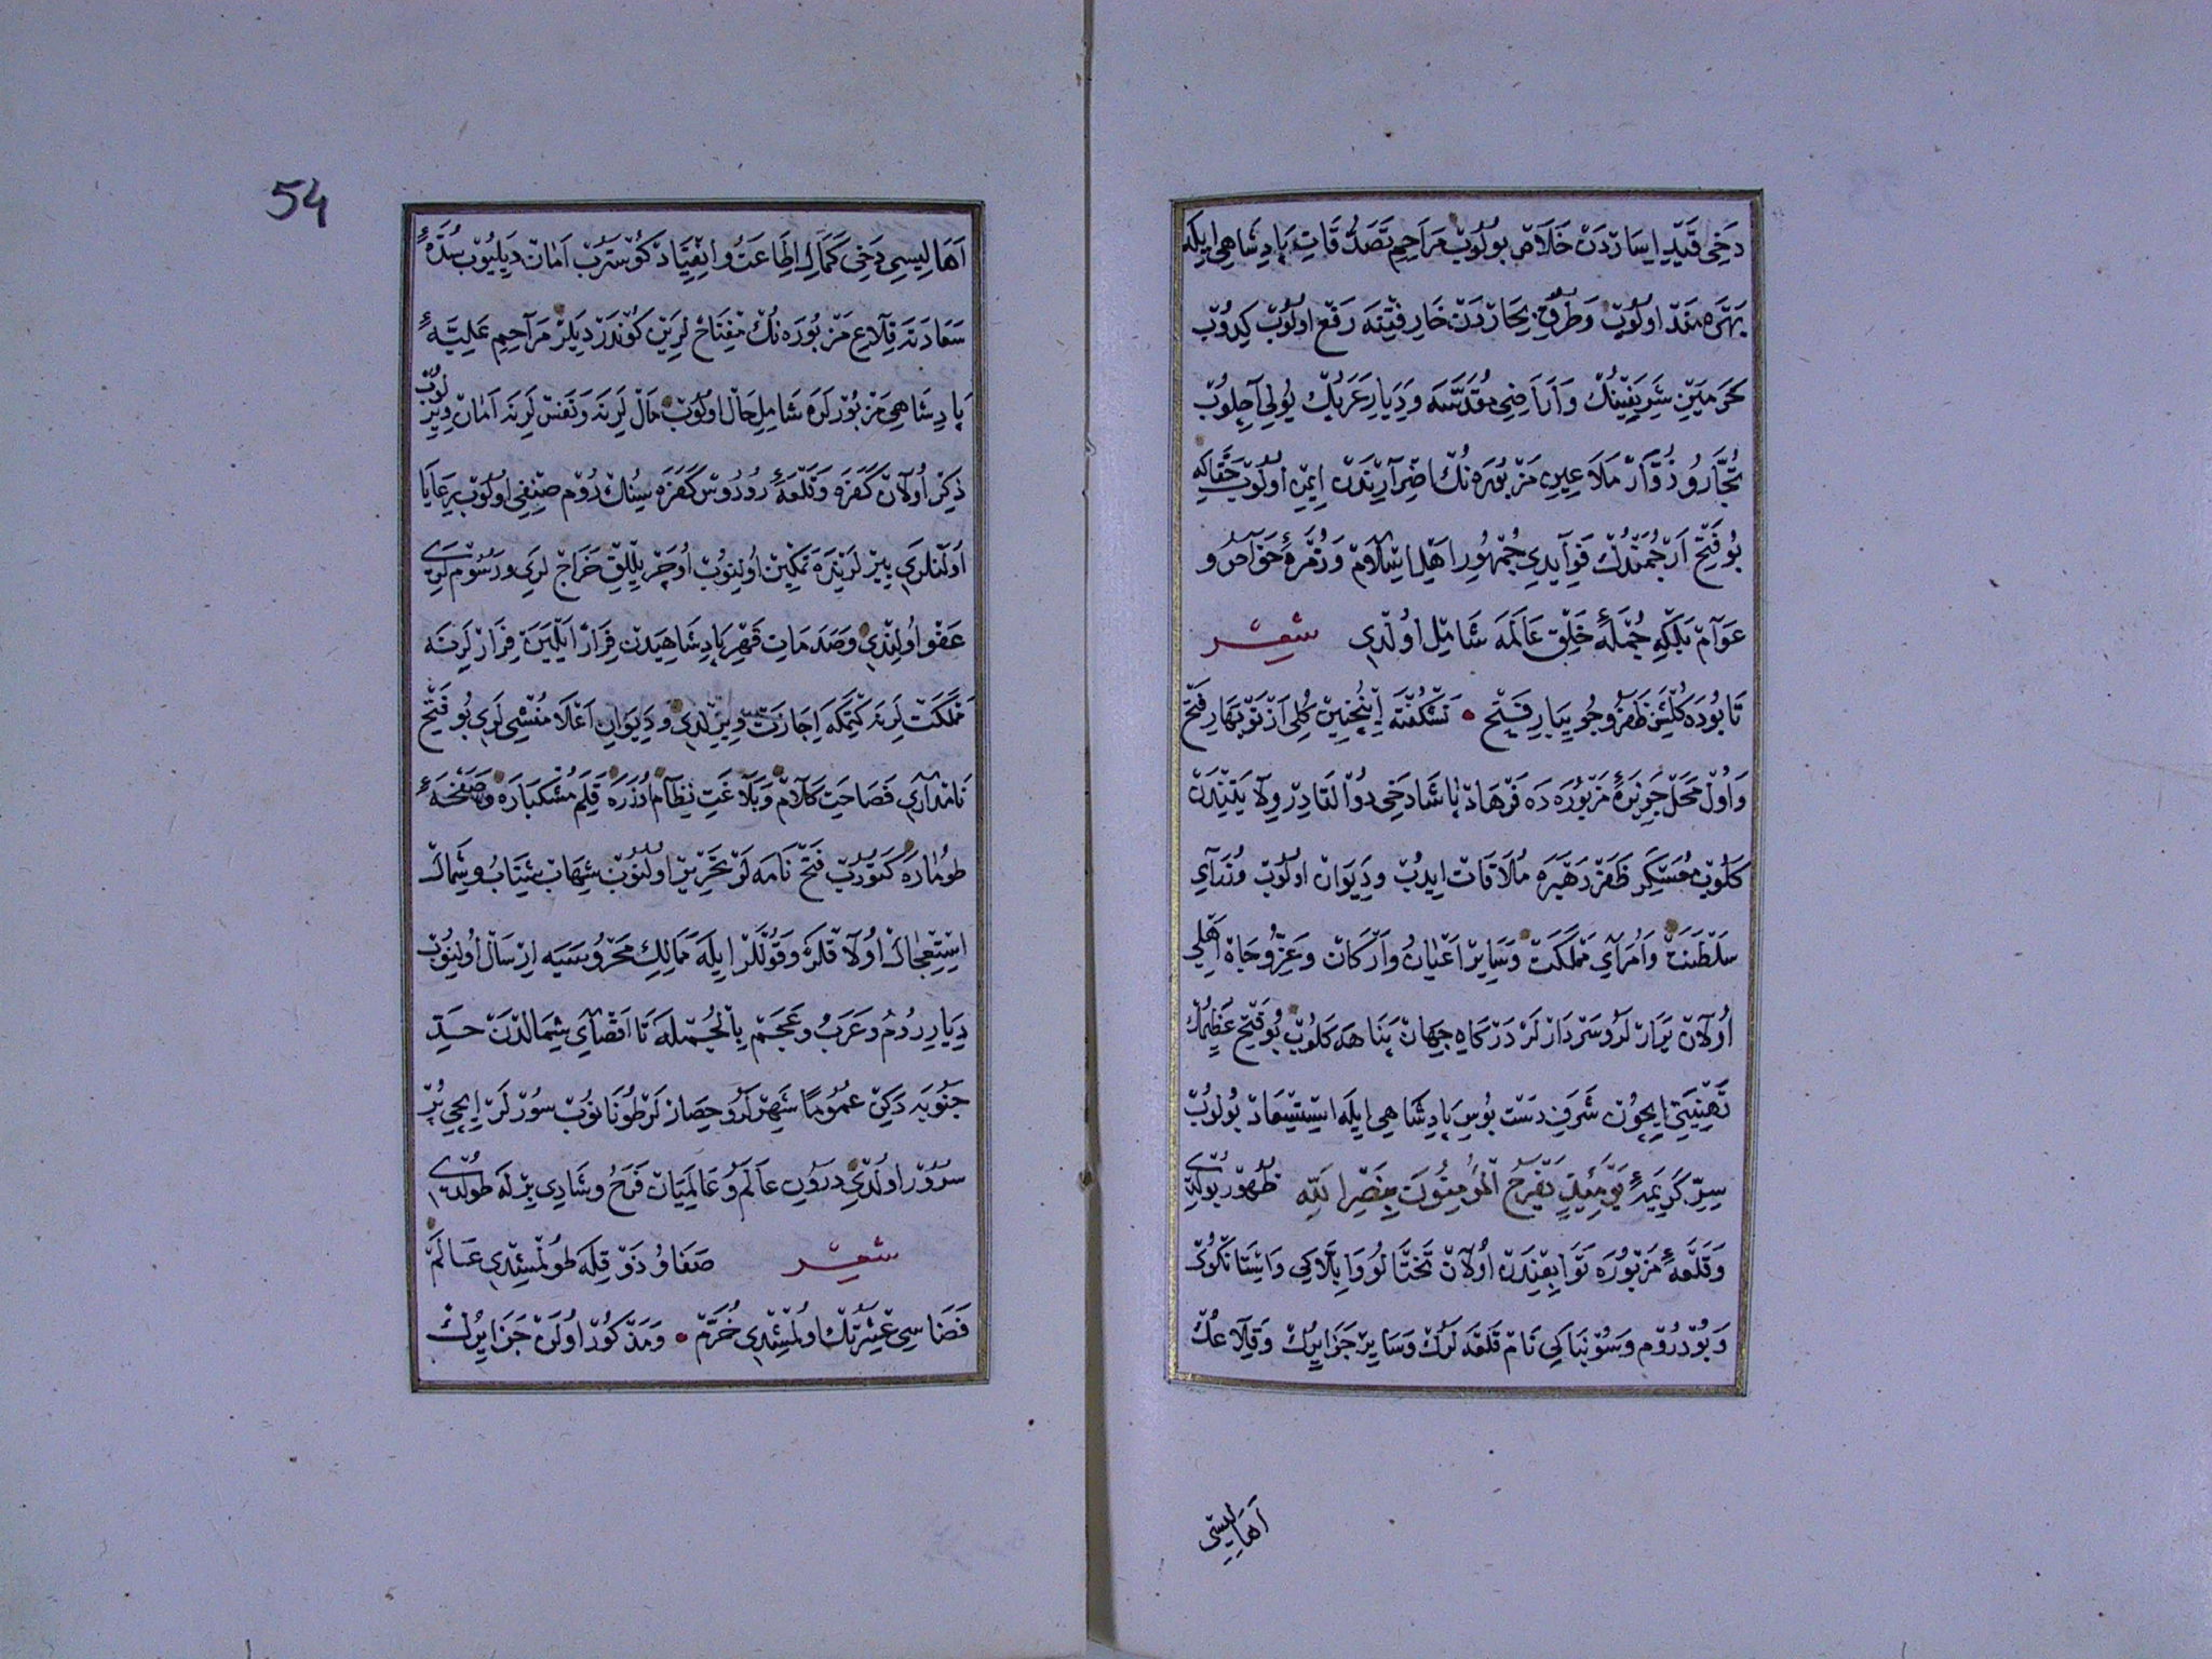 دخی قید ایساردن خلاص بولوب مراحم تصدقات پادشاهی ایله
بهره‌مند اولوب و طرق بحاردن خار فتنه رفع اولوب كیدوب
حرمین شریفینك و اراضی مقدسه و دیار عربك یولی آچلوب
تجار و زوار ملاعین مزبوره نك اضرارندن ایمن اولوب حقاكه
بو فتح ارجمندك فوایدی جمهور اهل اسلام و زمره خواص و
عوام بلكه جمله خلق عالمه شامل اولدی شعر
تا بوده كلشن ظفر و جویبار فتح • نشكفته اینچنین كلی از نوبهار فتح
و اول محل جزیره مزبوره ده فرهاد پاشا دخی ذو القادر ولایتندن
كلوب معسكر ظفر رهبره ملاقات ایدوب و دیوان اولوب وزرای
سلطنت و امرای مملكت و سایر اعیان و اركان و عز و جاه اهلی
اولان یرارلر و سردارلر دركاه جهان پناهه كلوب بو فتح عظیمك
تهنیتی ایچون شرف دست بوس پادشاهی ایله استسعاد بولوب
سر كریمه یومئذ یفرح المؤمنون بنصر الله ظهور بولدی
و قلعه مزبوره توابعندن اولان تختالو و ایلاكی و استانكوی
و بودروم و سونبكی نام قلعه لرك و سایر جزایرك و قلاعك
اهالیسی
54
اهالیسی دخی كمال اطاعت و انقیاد كوسترب امان دیلیوب سده
سعادته قلاع مزبوره نك مفتاح لرین كوندردیلر مراحم علیه
پادشاهی مزبورلره شامل حال اولوب مال لرینه و نفس لرینه امان ویریلوب
ذكر اولان كفره و قلعه رودوس كفره سینك روم صنفی اولوب رعایا
اولنلری یرلرینده تمكین اولنوب اوچر ییللق خراج لری و رسوملری
عفو اولندی و صدمات قهر پادشاهیدن قرار ایلمین فرارلرینه
مملكت لرینه كیتمكه اجازت ویرلدی و دیوان اعلا منشی لری بو فتح
نامداری فصاحت كلام و بلاغت نظام اوزره قلم مشكباره و صفحه
طوماره كتوروب فتح نامه لر تحریر اولنوب شهاب شتاب و شمال
استعجال اولاقلر و قوللر ایله ممالك محروسیه ارسال اولنوب
دیار روم و عرب و عجم بالجمله تا اقصای شمالدن حد
جنوبه دكین عموما شهرلر و حصارلر طونانوب سورلر ایچی پر
سرور اولدی درون عالم و عالمیان فرح و شادی برله طولدی
شعر صفا و ذوقله طولمشدی عالم
فضاسی عشرتك اولمشدی خرم • و مذكور اولن جزایرك